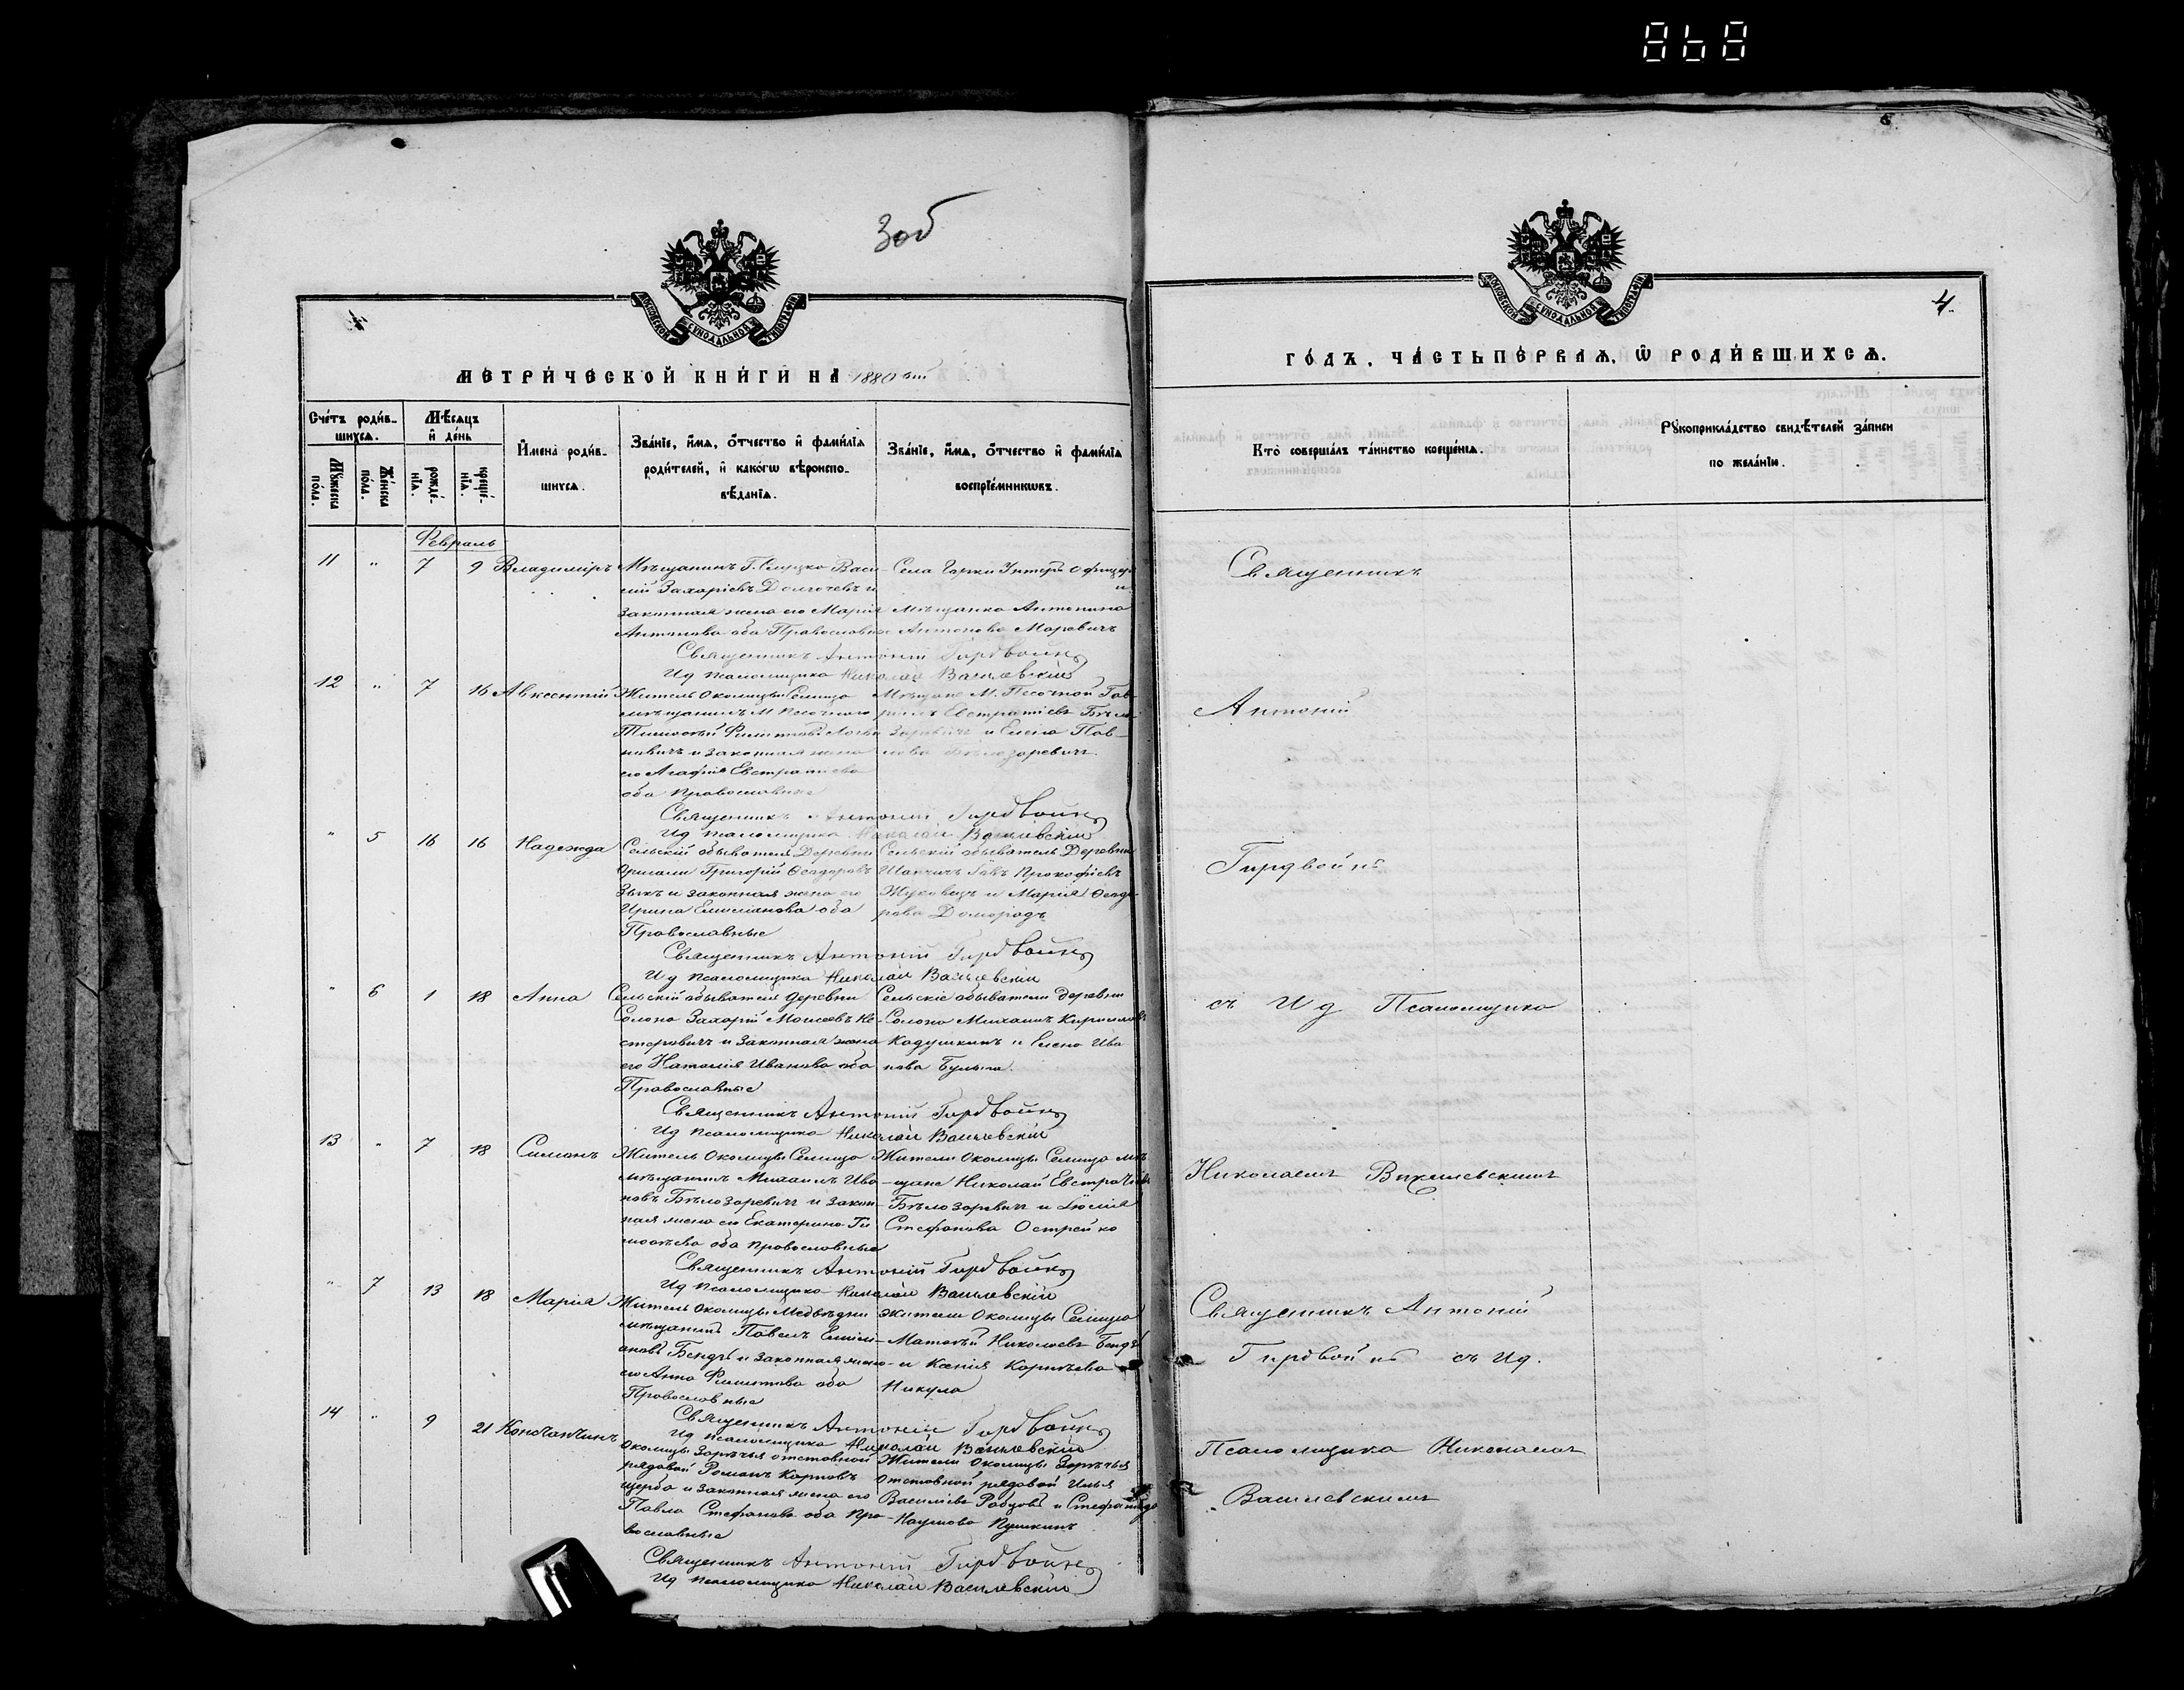 868
30б
МОСКОВСКОЙ СѴНОДАЛЬНОЙ ТИПОГРАФІИ
МЕТРИ́ЧЕСКОЙ КНИ́ГИ НА 1880 ый
Счётъ роди́в-
шихсѧ.
Мѣ́сѧцъ
и҆ де́нь
Му́жеска по́ла.
Же́нска по́ла.
рожде́-
нїѧ.
креще́-
нїѧ.
И҆мена̀ роди́в-
шихсѧ.
Зва́нїе, и҆́мѧ, ѻ҆́тчество и҆ фами́лїѧ
роди́телей, и҆ како́гѡ вѣроиспо-
вѣ́данїѧ.
Зва́нїе, и҆́мѧ, ѻ҆́тчество и҆ фами́лїѧ
воспрїе́мникѡвъ.
Февраль
11 " 7 9 Владиміръ
Мѣщанинъ Г. Слуцка Васи-
лій Захаріевъ и
законная жена его Марія
Антонова оба Православные
Села Унтеръ Офицеръ
и
мѣщанка Антонина
Антонова Маревичъ
Священникъ Антоній Гирдвоинъ
Ид псаломщика Николай Василевскій
12 " 7 16 Авксентій
Житель Околицы Селища
мѣщанинъ М. Песочного
Тимоѳей Филиповъ
и законная жена
его Агафія Евстратіева
оба православные
Мѣщане М. Песочной Гав-
рилъ Евстратіевъ Бѣло-
заревичъ и Елена Пав-
лова Бѣлозаревичъ
Священникъ Антоній Гирдвоинъ
Ид псаломщика Николай Василевскій
" 5 16 16 Надежда
Сельскій обыватель Деревни
Григорій Ѳеодоровъ
Зыкъ и законная жена его
Ирина Емиліанова оба
Православные
Сельскій обыватель Деревни
Прокофіевъ
Жуковецъ и Марія Ѳеодо-
рова Домородъ
Священникъ Антоній Гирдвоинъ
Ид псаломщика Николай Василевскій
" 6 1 18 Анна
Сельскій обыватель деревни
Солона Захарій Моисеевъ Не-
стеровичъ и законная жена
его Наталія Иванова оба
Православные
Сельскіе обыватели деревни
Солона Михаилъ Кирилловъ
Кадушкинъ и Елена Ива
нова Булыга.
Священникъ Антоній Гирдвоинъ
Ид псаломщика Николай Василевскій
13 " 7 18 Симонъ
Житель Околицы Селища
мѣщанинъ Михаилъ Ива-
новъ Бѣлозаревичъ и закон-
ная жена его Екатерина Ти
моѳеева оба православные
Жители Околицы Селища мѣ
щане Николай Евстратіевъ
Бѣлозаревичъ и Юлія
Стефанова Острейко
Священникъ Антоній Гирдвоинъ
Ид псаломщика Николай Василевскій
" 7 13 18 Марія
Житель Околицы Медвѣдни
мѣщанинъ Павелъ Емили-
ановъ Бендъ и законная жена
его Анна Филипова оба
Православные
Жители Околицы Селища
Матвѣй Николаевъ Бендъ
и Ксенія Корнѣева
Никула
Священникъ Антоній Гирдвоинъ
Ид псаломщика Николай Василевскій
14 " 9 21 Константинъ
Околицы Зарѣчья отставной
рядовой Романъ Карповъ
Щерба и законная жена его
Павла Стефанова оба пра-
вославные
Жители Околицы Зарѣчья
отставной рядовой Илья
Василіевъ Рабцовъ и Стефанида
Наумова Пушкинъ
Священникъ Антоній Гирдвоинъ
Ид псаломщика Николай Василевскій
МОСКОВСКОЙ СѴНОДАЛЬНОЙ ТИПОГРАФІИ
4.
ГО́ДЪ, ЧА́СТЬ ПЕ́РВАѦ, Ѽ РОДИ́ВШИХСѦ.
Кто̀ соверша́лъ та́инство креще́нїѧ.
Рꙋкоприкла́дство свидѣ́телей за́писи
по жела́нїю.
Священникъ
Антоній
Гирдвоинъ
съ И д Псаломщика
Николаемъ Василевскимъ
Священникъ Антоній
Гирдвоинъ съ Ид.
Псаломщика Николаемъ
Василевскимъ